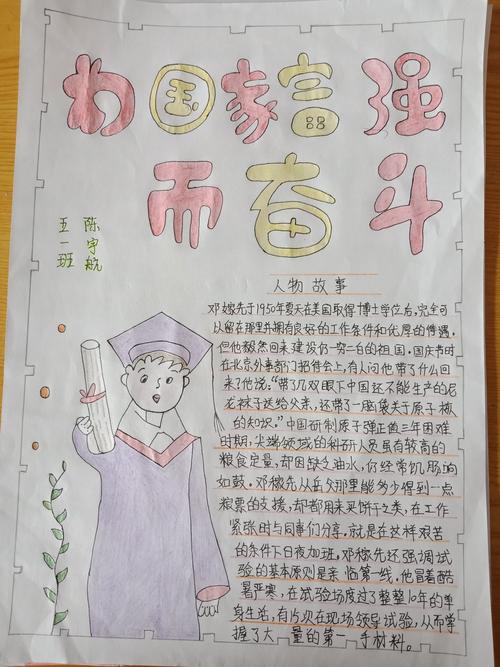 为国家富强
而奋斗
陈宇航
五一班
人物故事
邓稼先于1950年夏天在美国取得博士学位后,完全可
以留在那里并拥有良好的工作条件和优厚的待遇。
但他毅然回来建设仍一穷二白的祖国。国庆节时
在北京外事部门招待会上,有人问他带了什么回
来了他说:"带了几双眼下中国还不能生产的尼
龙袜子送给父亲,还带了一脑袋关于原子核
的知识。"中国研制原子弹正值三年困难
时期,尖端领域的科研人员虽有较高的
粮食定量,却因缺乏油水,仍经常饥肠响
如鼓。邓稼先从岳父那里能多少得到一点
粮票的支援,却都用来买饼干之类,在工作
紧张时与同事们分享。就是在这样艰苦
的条件下日夜加班。邓稼先还强调试
验的基本原则是亲临第一线,他冒着酷
暑严寒,在试验场度过了整整10年的单
身生活,有15次在现场领导试验,从而掌
握了大量的第一手材料。